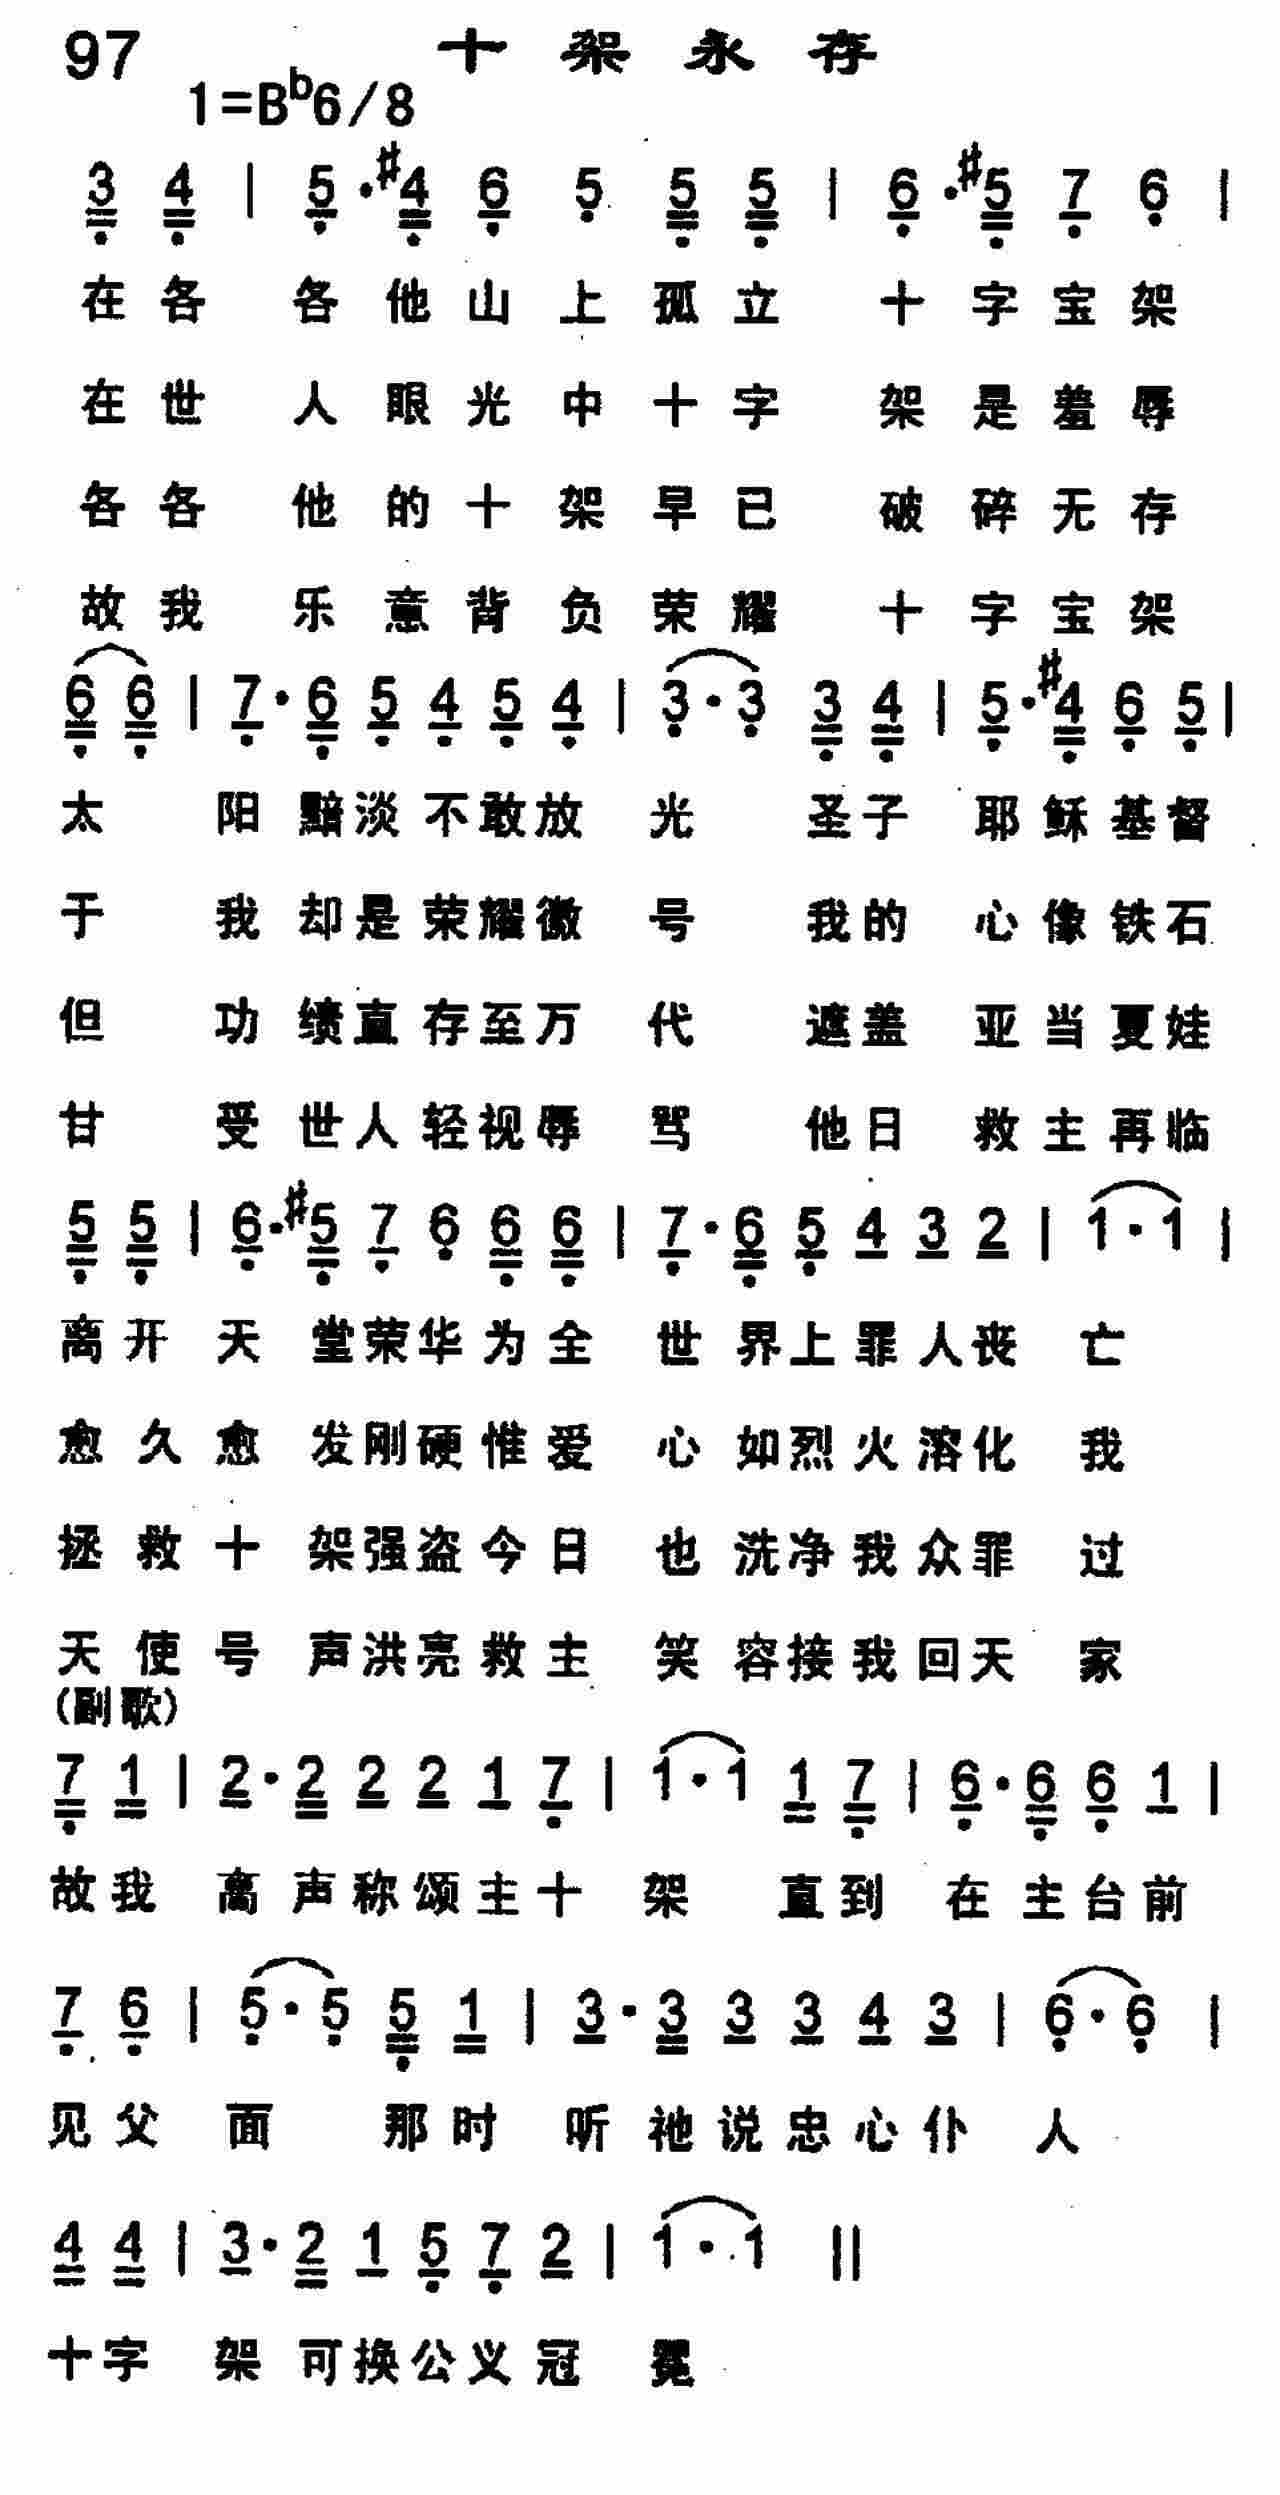 97 十架永存
1=B♭6/8
3 4 | 5 · #4 6 5 5 5 | 6 · #5 7 6 |
在各 各他山上孤立 十字宝架
在世 人眼光中十字 架是羞辱
各各 他的十架早已 破碎无存
故我 乐意背负荣耀 十字宝架
6 6 | 7 · 6 5 4 5 4 | 3 · 3 3 4 | 5 · #4 6 5 |
太 阳黯淡不敢放 光 圣子 耶稣基督
于 我却是荣耀徽 号 我的 心像铁石
但 功绩直存至万 代 遮盖 亚当夏娃
甘 受世人轻视辱 骂 他日 救主再临
5 5 | 6 · #5 7 6 6 6 | 7 · 6 5 4 3 2 | 1 · 1 |
离开天 堂荣华为全 世界上罪人丧 亡
愈久愈 发刚硬惟爱 心如烈火溶化 我
拯救十 架强盗今日 也洗净我众罪 过
天使号 声洪亮救主 笑容接我回天 家
(副歌)
7 1 | 2 · 2 2 2 1 7 | 1 · 1 1 7 | 6 · 6 6 1 |
故我 离声称颂主十 架 直到 在主台前
7 6 | 5 · 5 5 1 | 3 · 3 3 3 4 3 | 6 · 6 |
见父 面 那时 听祂说忠心仆 人
4 4 | 3 · 2 1 5 7 2 | 1 · 1 ||
十字 架可换公义冠 冕